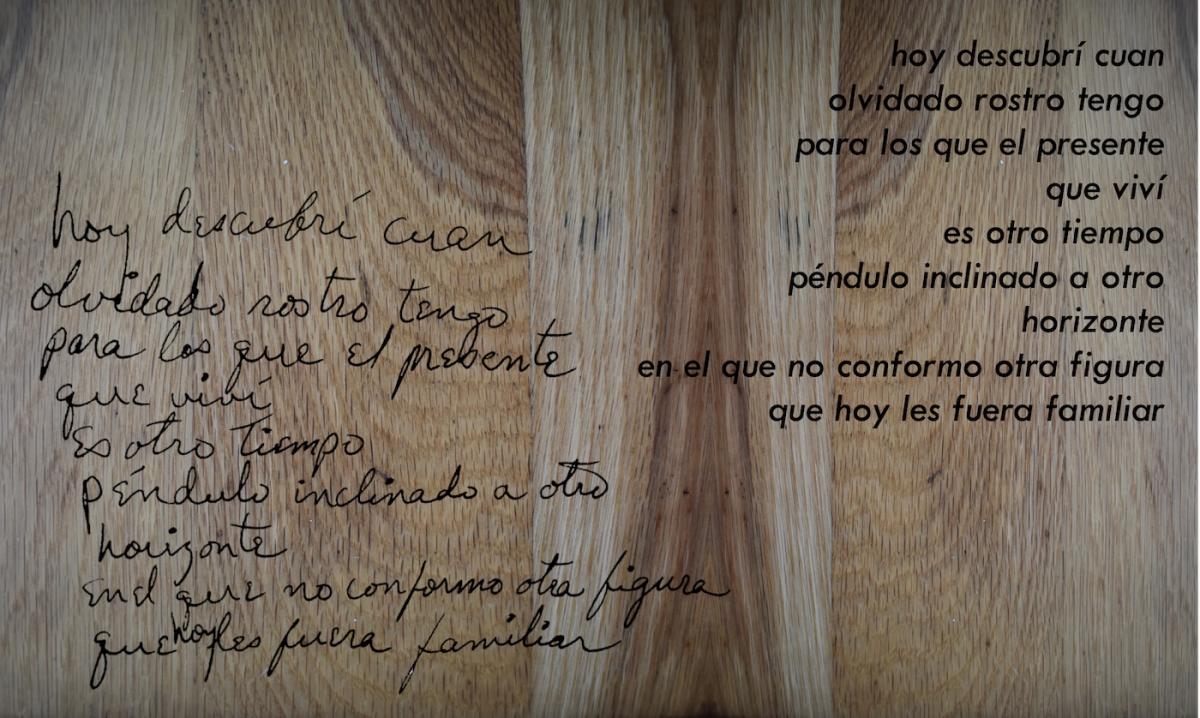 hoy descubrí cuan
olvidado rostro tengo
para los que el presente
que viví
es otro tiempo
péndulo inclinado a otro
horizonte
en el que no conformo otra figura
que hoy les fuera familiar
hoy descubrí cuan
olvidado rostro tengo
para los que el presente
que viví
es otro tiempo
péndulo inclinado a otro
horizonte
en el que no conformo otra figura
que hoy les fuera familiar